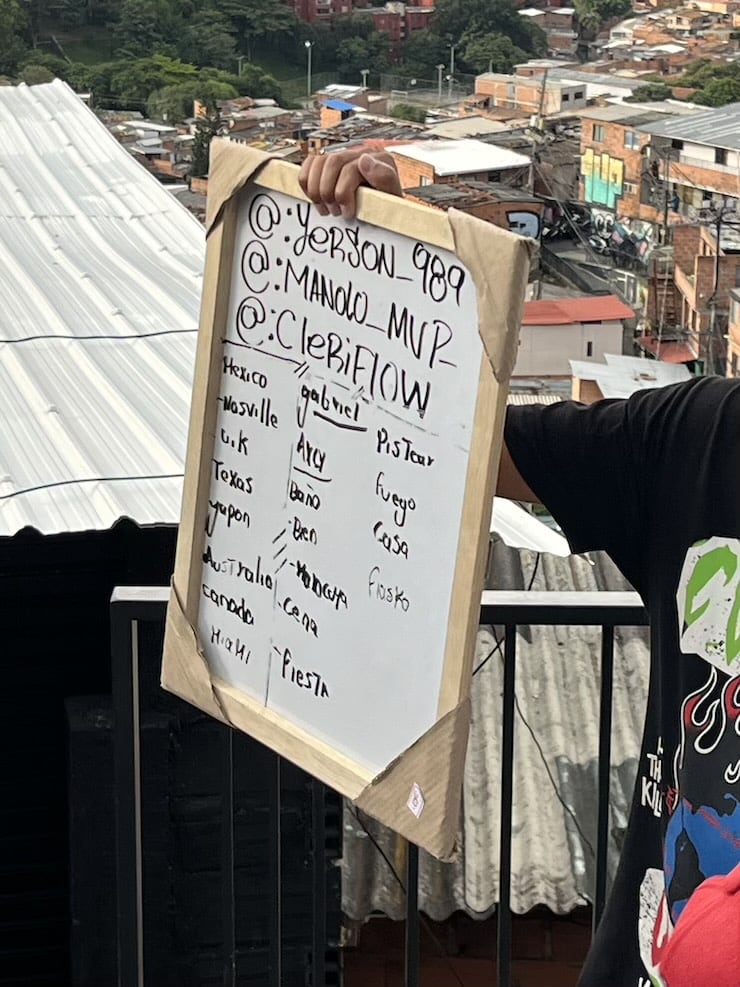 @:YERSON_989
@:MANOLO_MVP_
@:CleRiFlOW
Mexico
-Nasville
U.K
Texas
yapon
Australia
canada
MiaMi
gabriel
Arcy
Baño
-Ben
-Cena
-Fiesta
PisTear
fuego
Casa